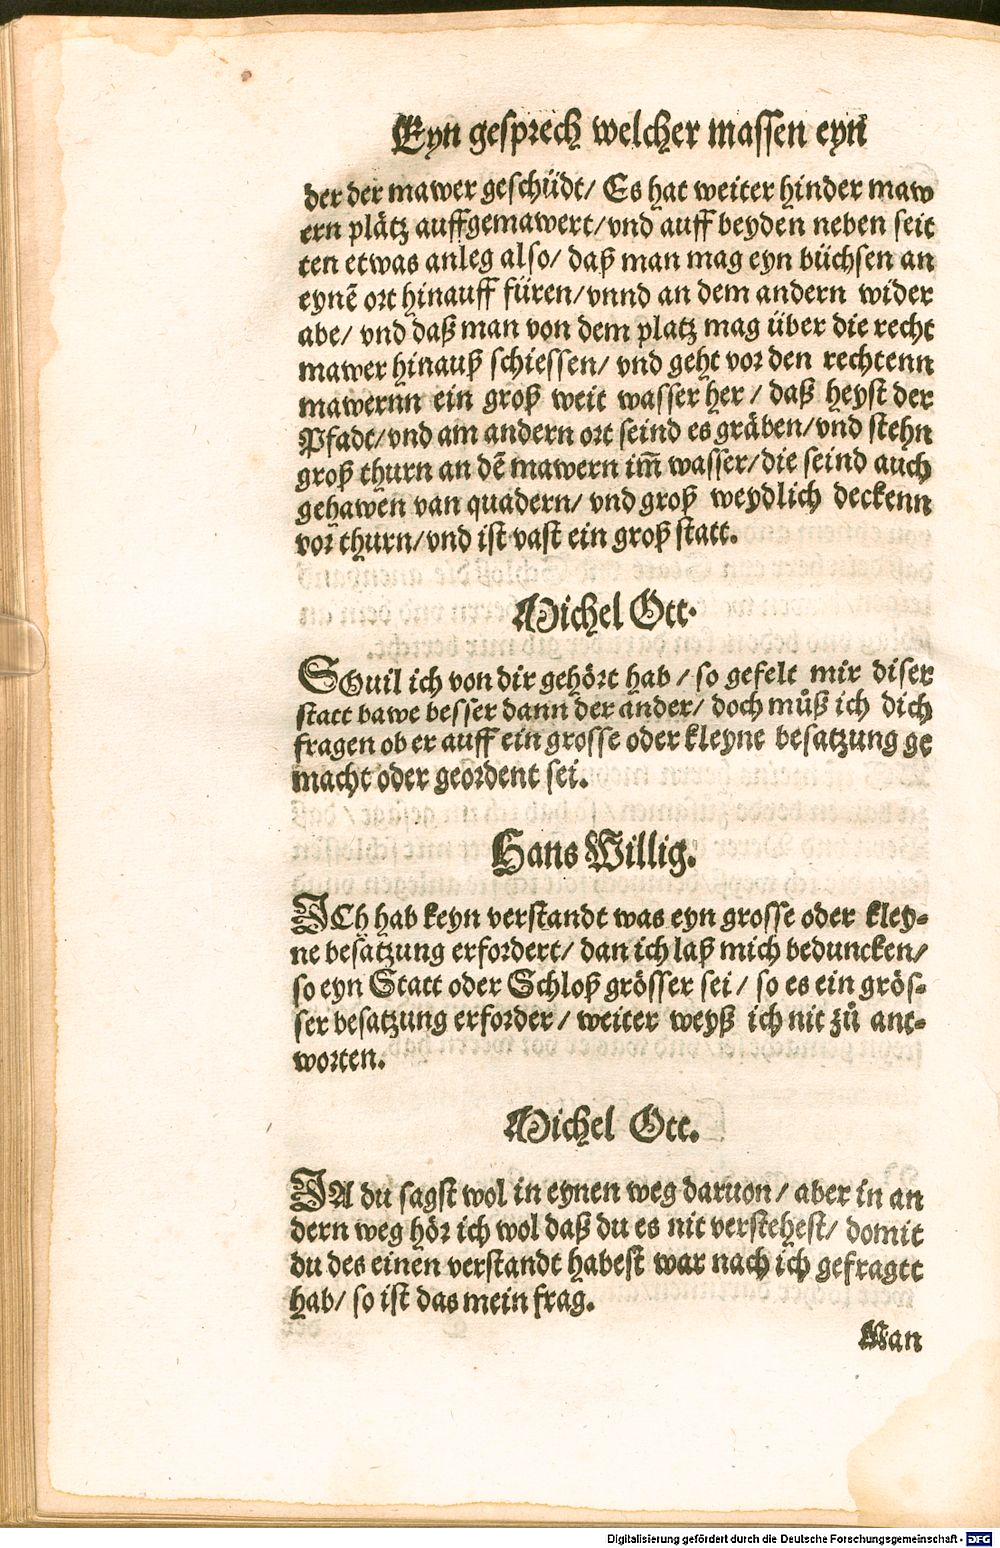 Eyn gesprech welcher massen eyn
der der mawer geschüdt/ Es hat weiter hinder maw
ern plätz auffgemawert/vnd auff beyden neben seit
ten etwas anleg also/ daß man mag eyn büchsen an
eynẽ ort hinauff füren/vnnd an dem andern wider
abe/ vnd daß man von dem platz mag über die recht
mawer hinauß schiessen/ vnd geht vor den rechtenn
mawernn ein groß weit wasser her/ daß heyst der
Pfadt/vnd am andern ort seind es gräben/vnd stehn
groß thurn an dẽ mawern im̃ wasser/die seind auch
gehawen van quadern/ vnd groß weydlich deckenn
vor thurn/vnd ist vast ein groß statt.
Michel Ott.
SOuil ich von dir gehört hab/ so gefelt mir diser
statt bawe besser dann der ander/ doch můß ich dich
fragen ob er auff ein grosse oder kleyne besatzung ge
macht oder geordent sei.
Hans Willig.
ICh hab keyn verstandt was eyn grosse oder kley-
ne besatzung erfordert/ dan ich laß mich beduncken/
so eyn Statt oder Schloß grösser sei/ so es ein grös-
ser besatzung erforder/ weiter weyß ich nit zů ant-
worten.
Michel Ott.
IA du sagst wol in eynen weg daruon/ aber in an
dern weg hör ich wol daß du es nit verstehest/ domit
du des einen verstandt habest war nach ich gefragtt
hab/ so ist das mein frag.
Wan
Digitalisierung gefördert durch die Deutsche Forschungsgemeinschaft - DFG